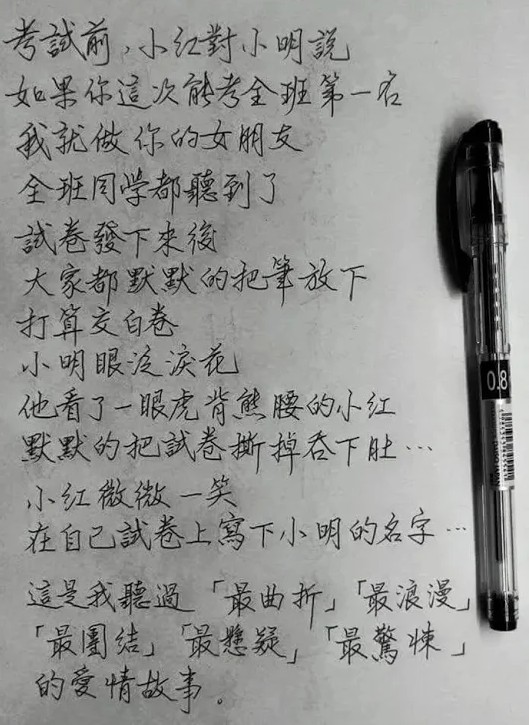 考試前，小红對小明說
如果你這次能考全班第一名
我就做你的女朋友
全班同学都聽到了
試卷發下來後
大家都默默的把筆放下
打算交白卷
小明眼泛淚花
他看了一眼虎背熊腰的小红
默默的把試卷撕掉吞下肚…
小红微微一笑
在自己試卷上寫下小明的名字…
這是我聽過「最曲折」「最浪漫」
「最團结」「最懸疑」「最驚悚」
的愛情故事。
0.8